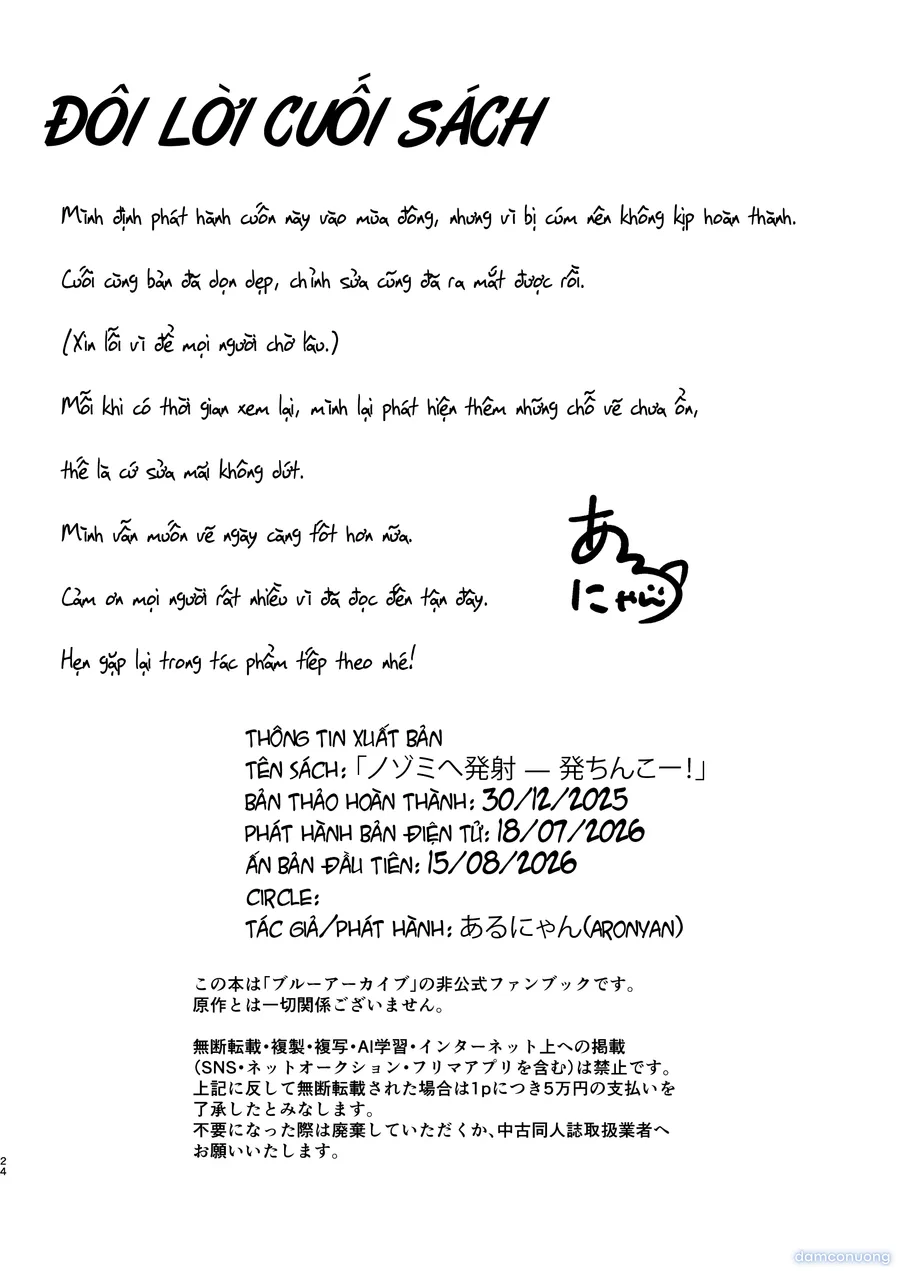 ĐÔI LỜI CUỐI SÁCH
Mình định phát hành cuốn này vào mùa đông, nhưng vì bị cúm nên không kịp hoàn thành.
Cuối cùng bản đã dọn dẹp, chỉnh sửa cũng đã ra mắt được rồi.
(Xin lỗi vì để mọi người chờ lâu.)
Mỗi khi có thời gian xem lại, mình lại phát hiện thêm những chỗ vẽ chưa ổn,
thế là cứ sửa mãi không dứt.
Mình vẫn muốn vẽ ngày càng tốt hơn nữa.
Cảm ơn mọi người rất nhiều vì đã đọc đến tận đây.
Hẹn gặp lại trong tác phẩm tiếp theo nhé!
あるにゃん
THÔNG TIN XUẤT BẢN
TÊN SÁCH:「ノゾミへ発射 — 発ちんこー!」
BẢN THẢO HOÀN THÀNH: 30/12/2025
PHÁT HÀNH BẢN ĐIỆN TỬ: 18/07/2026
ẤN BẢN ĐẦU TIÊN: 15/08/2026
CIRCLE:
TÁC GIẢ/PHÁT HÀNH: あるにゃん(ARONYAN)
この本は「ブルーアーカイブ」の非公式ファンブックです。
原作とは一切関係ございません。
無断転載・複製・複写・AI学習・インターネット上への掲載
(SNS・ネットオークション・フリマアプリを含む)は禁止です。
上記に反して無断転載された場合は1pにつき5万円の支払いを
了承したとみなします。
不要になった際は廃棄していただくか、中古同人誌取扱業者へ
お願いいたします。
24
damconuong